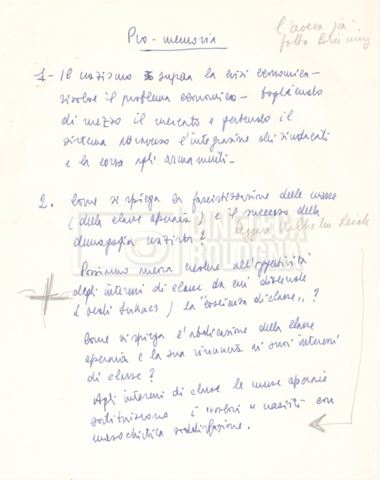 Pro-memoria
l'aveva già
fatto Brüning
1- Il nazismo supera la crisi economica -
risolve il problema economico - togliendo
di mezzo il mercato e portando il
sistema attraverso l'integrazione dei sindacati
e la corsa agli armamenti -
2. Come si spiega la fascistizzazione delle masse
(della classe operaia) e il successo della
demagogia nazista? leggere Wilhelm Reich
Possiamo ancora credere all'oggettività
degli interessi di classe da cui discende
(vedi Lukács) la "coscienza di classe"?
Come si spiega l'abdicazione della classe
operaia e la sua rinuncia ai suoi interessi
di classe?
Agli interessi di classe le masse operaie
sostituiscono i "valori" nazisti con
masochistica soddisfazione.